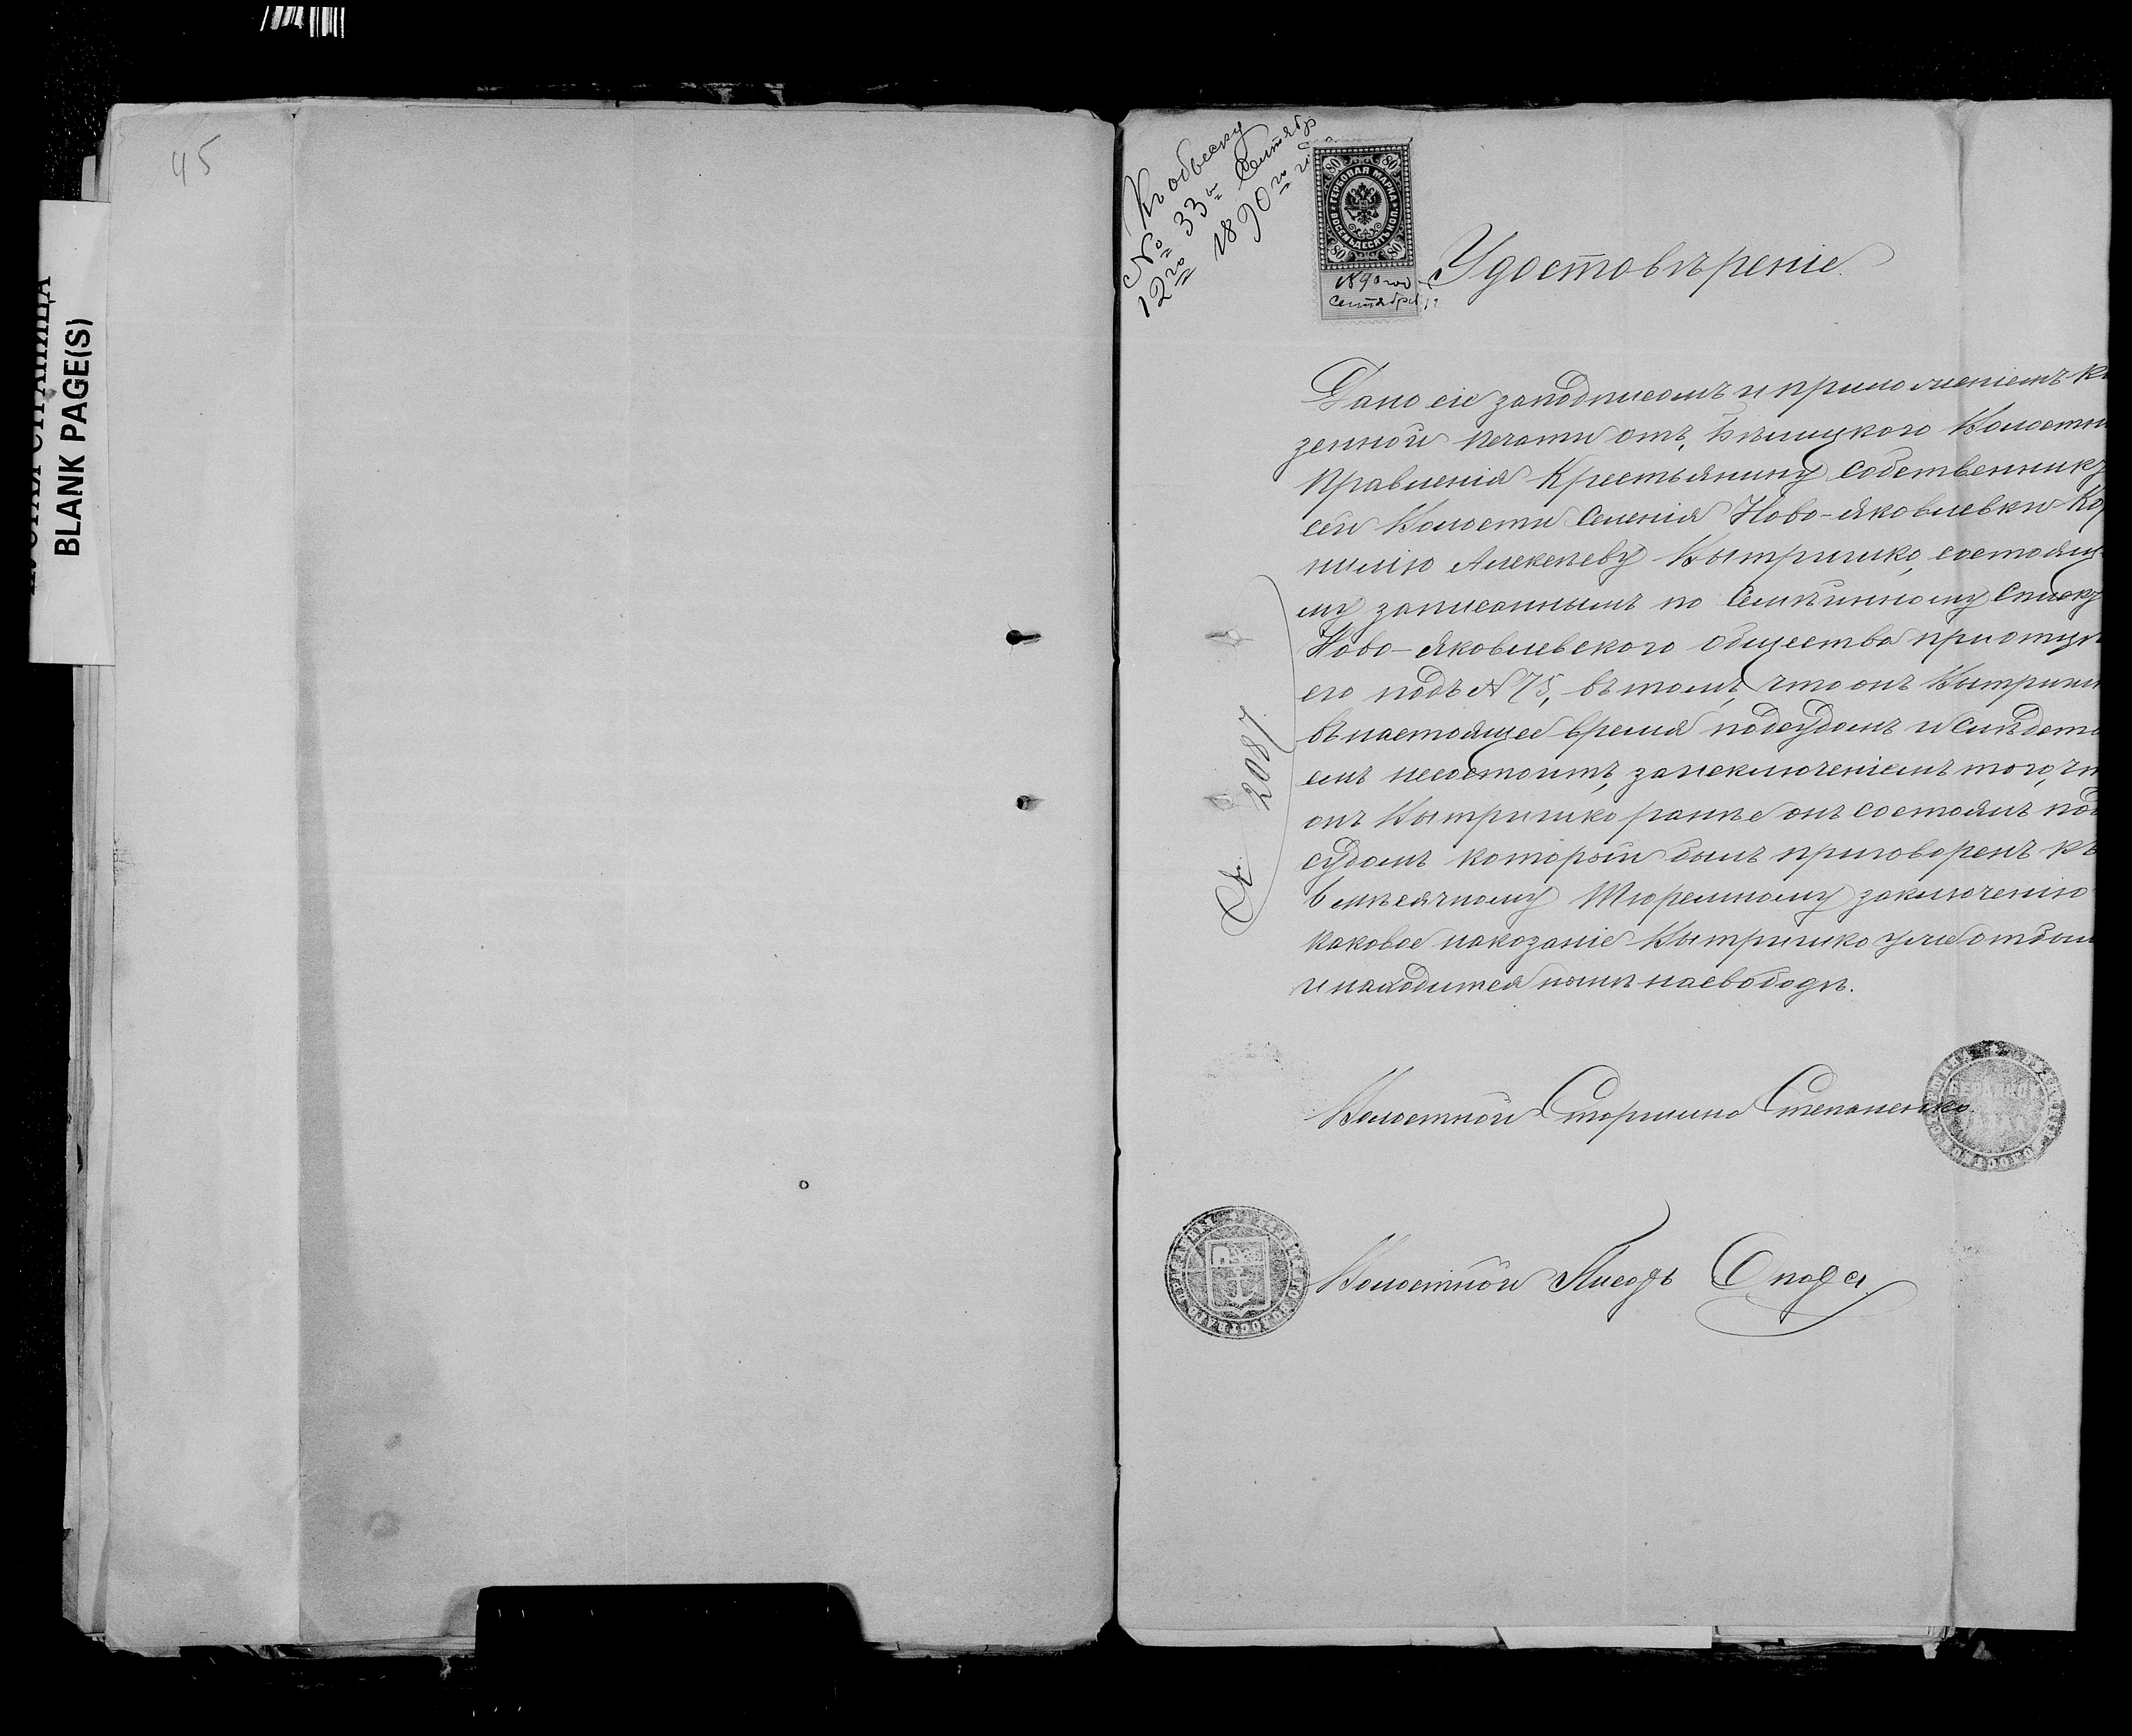 45
ПУСТАЯ СТРАНИЦА
BLANK PAGE(S)
Къ обыску
№ 33й Сентябр
12го 1890го
80 80
ГЕРБОВАЯ МАРКА
ВОСЕМЬДЕСЯТЪ КОП.
80 80
1890 го
Сентября
Удостовѣреніе.
Дано сіе заподписомъ и приложеніемъ ка
зенной печати отъ, Бѣлицкого Волостн
Правленія Крестьянину Собственнику
сей Волости Селенія Ново-Яковлевки Кор
нилію Алексѣеву Хытришко, состоящ
му записаннымъ по Семѣйному Списку
Ново-Яковлевского Общества приотцѣ
его подъ №75, въ томъ, что онъ Хытришк
въ настоящее время подсудомъ и Слѣдств
емъ несостоитъ, заисключеніемъ того, чт
онъ Хытришко ранѣе онъ состоялъ под
судомъ который былъ приговоренъ къ
6 мѣсячному Тюремному заключенію
каковое наказаніе Хытришко уже отбыл
и находится нынѣ насвободѣ.
№ 2087
Волостной Старшина Степаненко
Волостной Писарь